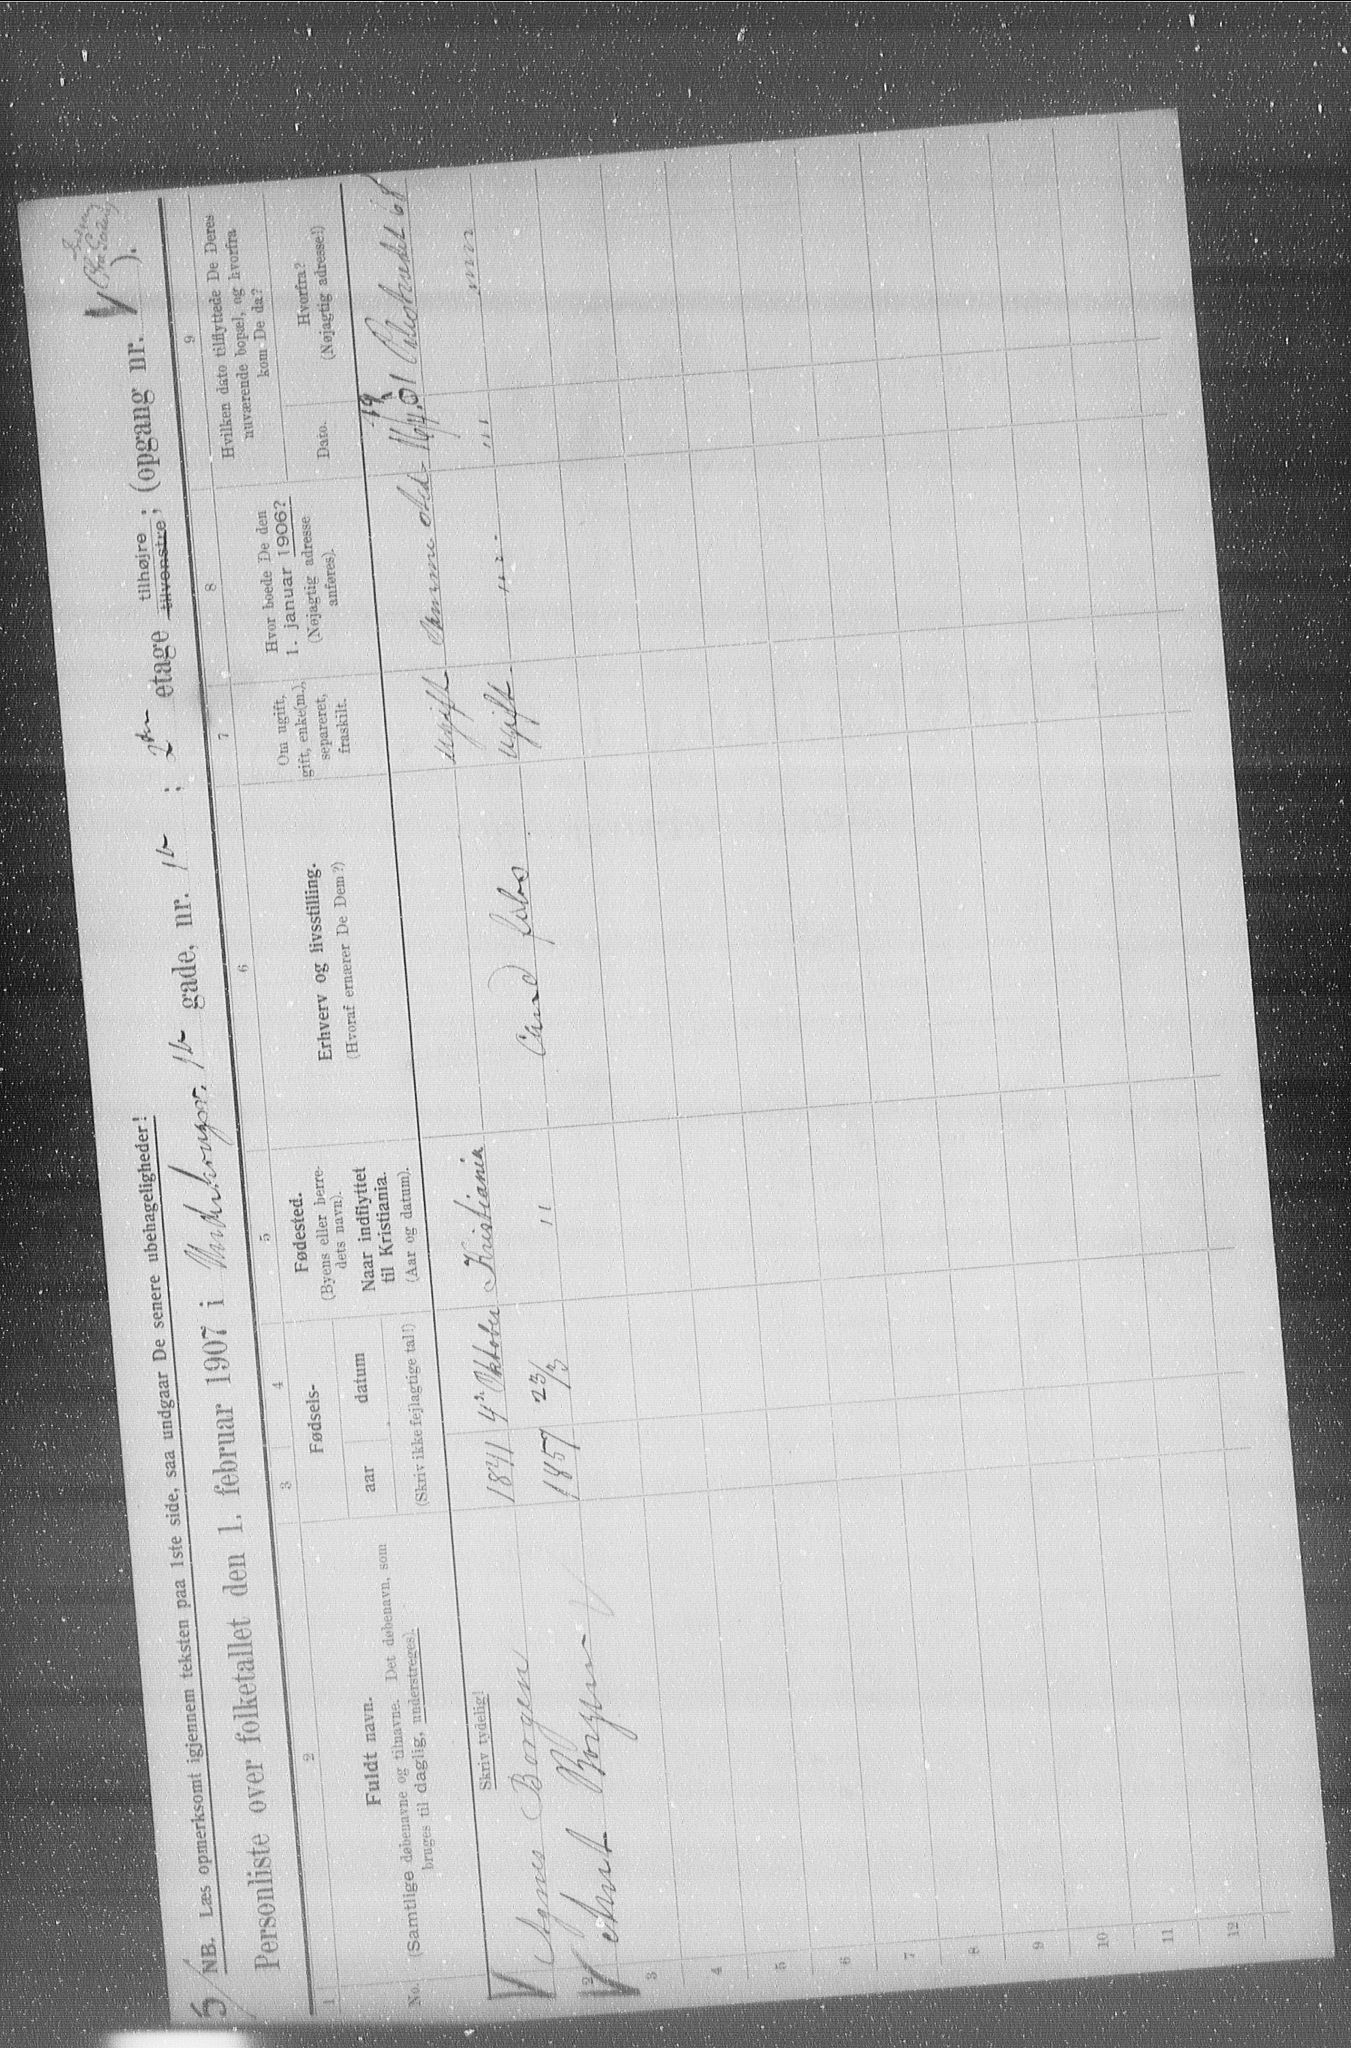 5/
NB. Læs opmerksomt igjennem teksten paa 1ste side, saa undgaar De senere ubehageligheder!
Personliste over folketallet den 1. februar 1907 i 16 gade, nr. 16 ; 2den etage tilhøjre ; tilvenstre ; (opgang nr. ).
1
2
3
4
5
6
7
8
9
No.
Fuldt navn.
(Samtlige døbenavne og tilnavne. Det døbenavn, som
bruges til daglig, understreges).
Fødsels-
aar
datum
(Skriv ikke fejlagtige tal!)
Fødested.
(Byens eller herre-
dets navn).
Naar indflyttet
til Kristiania.
(Aar og datum).
Erhverv og livsstilling.
(Hvoraf ernærer De Dem?)
Om ugift,
gift, enke(m.),
separeret,
fraskilt.
Hvor boede De den
1. januar 1906?
(Nøjagtig adresse
anføres).
Hvilken dato tilflyttede De Deres
nuværende bopæl, og hvorfra
kom De da?
Dato.
Hvorfra?
(Nøjagtig adresse!)
Skriv tydelig!
Agnes Borgen 4de Oktober Kristiania ugift Samme sted 16/4.01 68
2 Borgen 1857 23/3 " Cand ugift " " " " "
3
4
5
6
7
8
9
10
11
12